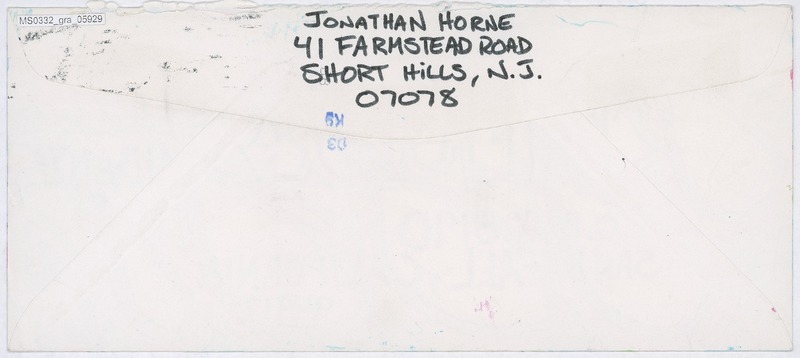 MS0332_gra_05929
JONATHAN HORNE
41 FARMSTEAD ROAD
SHORT HILLS, N.J.
07078
K9
D3